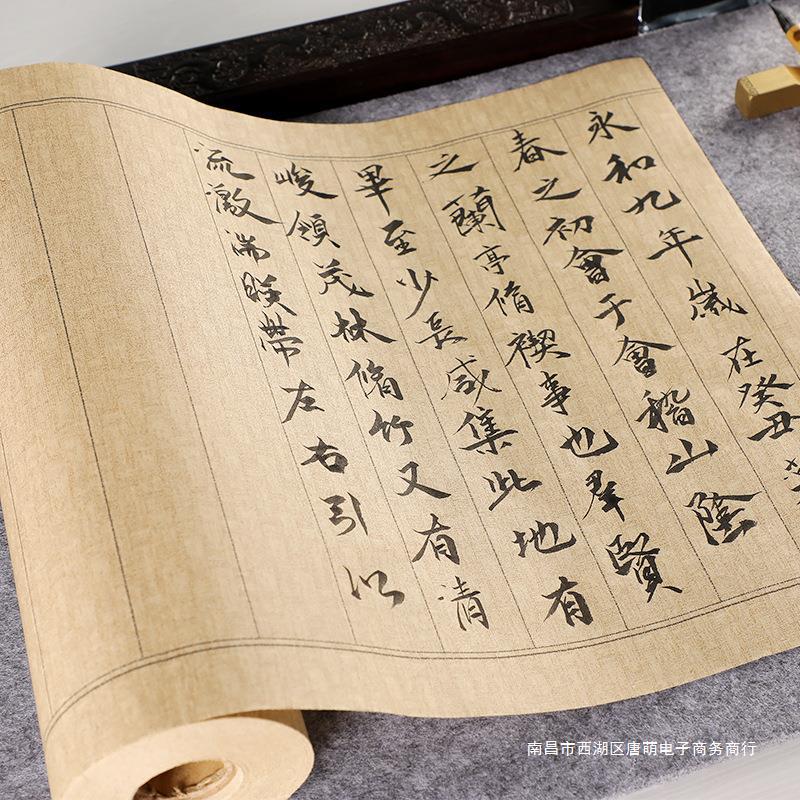 永和九年歲在癸丑
春之初會于會稽山陰
之蘭亭脩禊事也羣賢
畢至少長咸集此地有
峻領茂林脩竹又有清
流激湍暎帶左右引以
南昌市西湖区唐萌电子商务商行